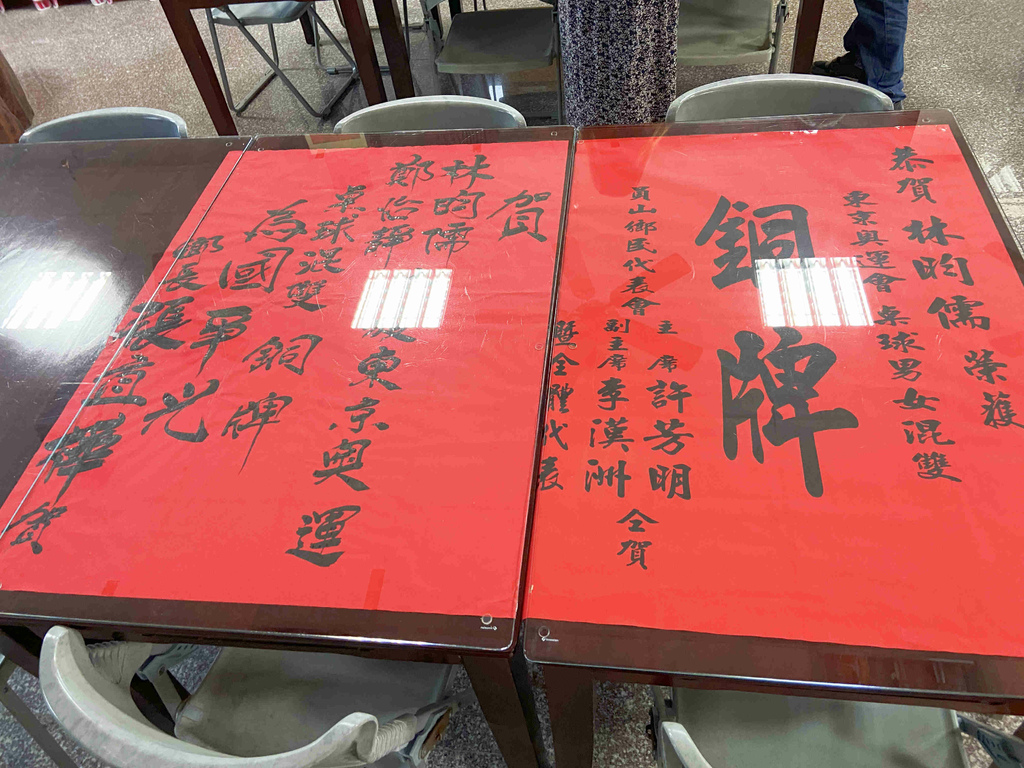 恭賀 林昀儒 榮獲
東京奧運會 桌球男女混雙
銅牌
員山鄉民代表會
主席 許芳明
副主席 李漢洲
暨全體代表
仝賀
賀
林昀儒
鄭怡靜 獲東京奧運
桌球混雙 銅牌
為國爭光
鄉長 張宜樺 賀